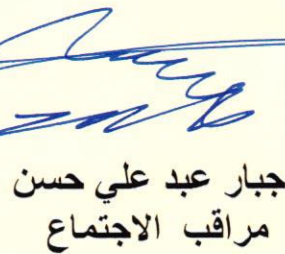 جبار عبد علي حسن
مراقب الاجتماع